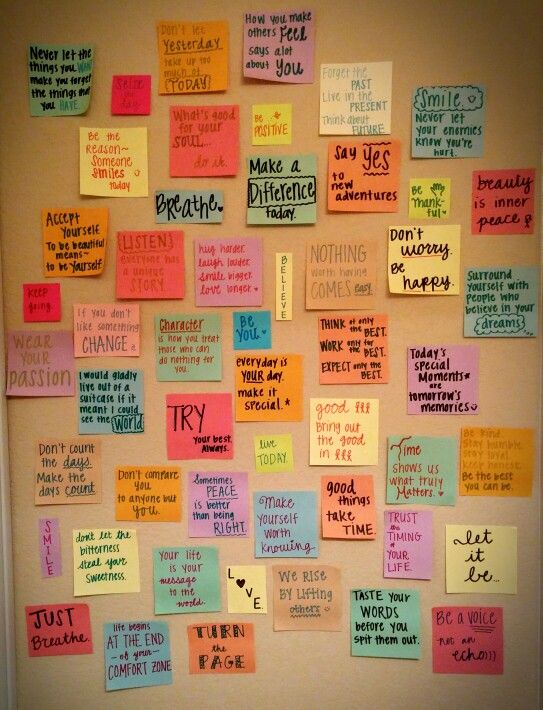 Never let the
things you WANT
make you forget
the things that
you HAVE
Seize
the
day.
Don't let
Yesterday
take up too
much of
(TODAY)
How you make
others Feel
says alot
about YOU
Forget the
PAST
Live in the
PRESENT
Think about
FUTURE
Smile
Never let
your enemies
know you're
hurt.
Be the
Reason~
Someone
Smiles
today
What's good
for your
SOUL...
do it.
Be
POSITIVE
Breathe.
Make a
Difference
today.
Say YES
to
new
adventures
Be
Thank-
ful
beauty
is inner
peace
Accept
Yourself
To be beautiful
means~
to be Yourself
LISTEN
everyone has
a unique
STORY.
hug harder.
laugh louder.
smile bigger.
love longer.
BELIEVE
NOTHING
worth having
COMES easy
Don't
worry.
Be
happy.
Surround
yourself with
people who
believe in your
dreams
Keep
going.
If you don't
like something
CHANGE it.
Character
is how you treat
those who can
do nothing for
you.
Be
You.
THINK of only the BEST.
WORK only for the BEST.
EXPECT only the BEST.
WEAR
YOUR
PASSION
I would gladly
live out of a
suitcase if it
meant I could
see the World
TRY
Your best.
Always.
everyday is
YOUR day.
make it
special.*
Today's
special
Moments*
are
tomorrow's
memories
good
Bring out
the good
in
Don't count
the days.
Make the
days count
Don't compare
you
to anyone but
you.
Sometimes
PEACE
is better
than being
RIGHT.
live
TODAY.
Make
yourself
worth
knowing
good
things
take
TIME.
Time
shows us
what truly
Matters.
Be kind.
stay humble.
stay loyal.
keep honest.
Be the best
you can be.
SMILE
don't let the
bitterness
steal your
sweetness.
Your life
is your
message
to the
world.
LOVE.
We RISE
by LIFTING
others
TRUST
the
TIMING
of
YOUR
LIFE.
Let
it
be...
JUST
Breathe.
life begins
AT THE END
-of your-
COMFORT ZONE
TURN
the
PAGE
TASTE YOUR
WORDS
before you
spit them out.
Be a VOICE
not an
echo)))